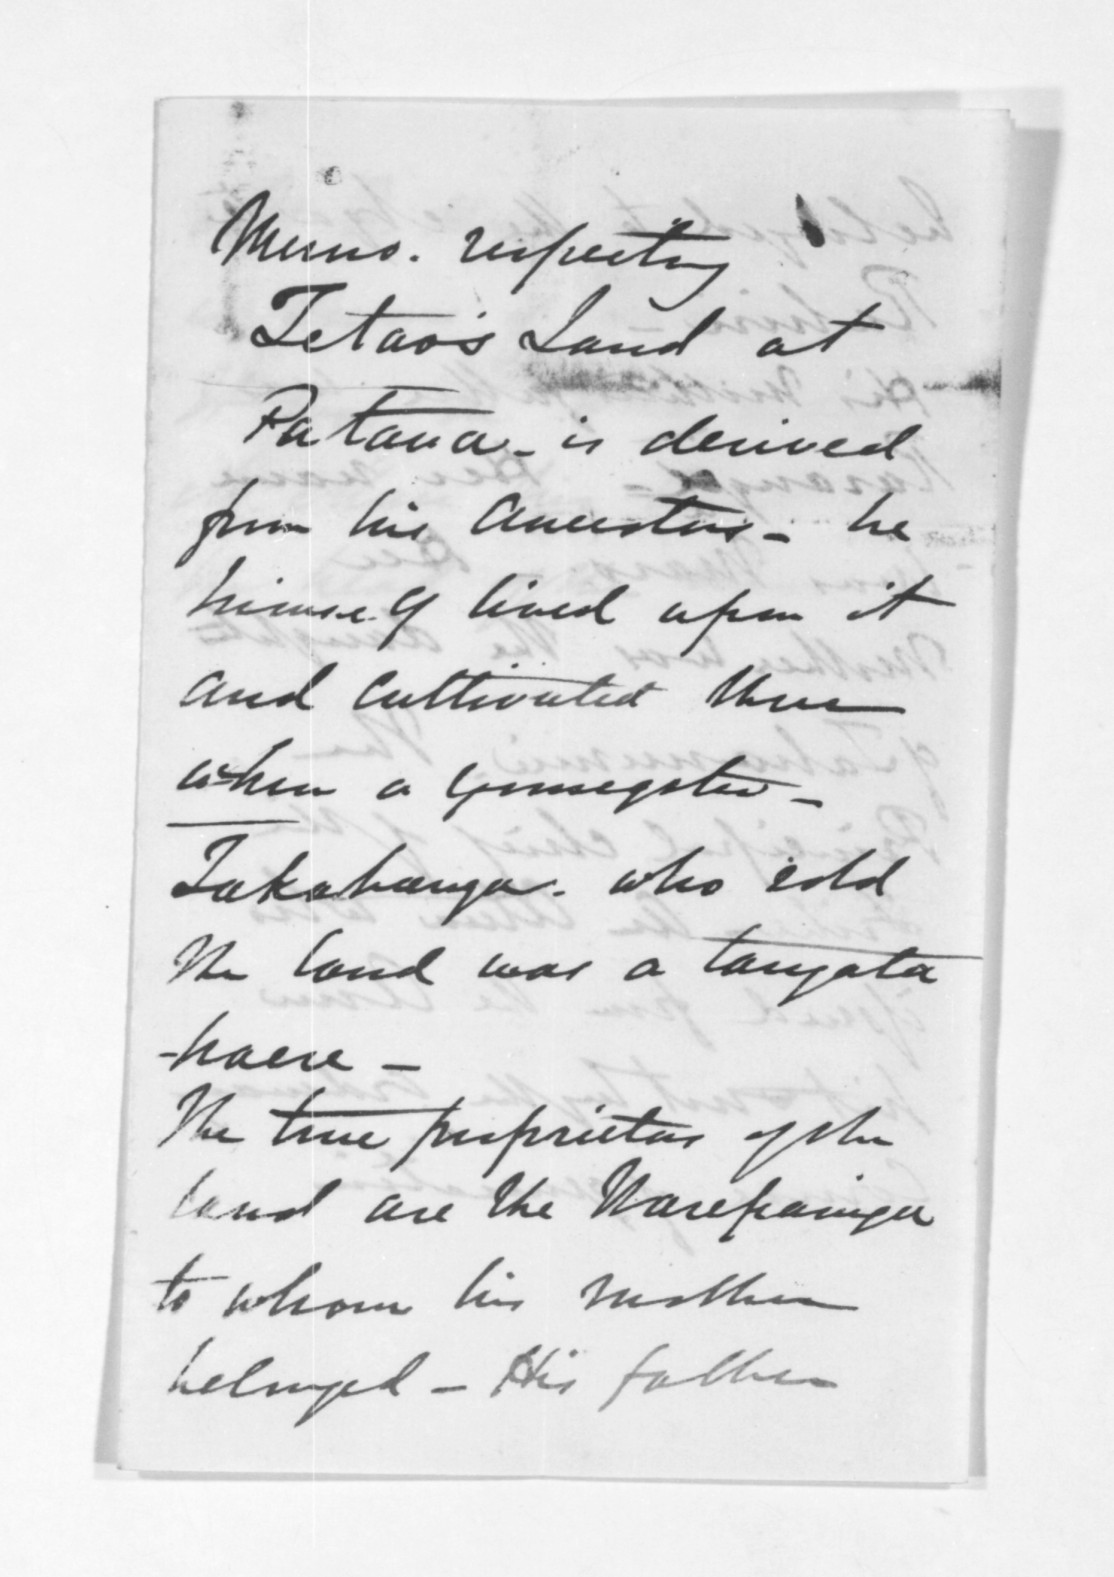 Memo. respecting
Tetao's Land at
Patana - is derived
from his Ancestors - he
himself lived upon it
and cultivated there
when a youngster -
Takahanga. who sold
the land was a tangata
haere -
The true proprietors of the
land are the Narepainga
to whom his mother
belonged - His father